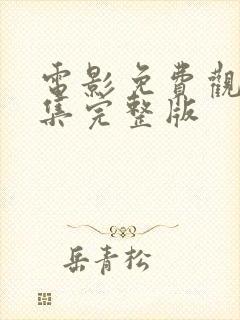 電影免費觀
集完整版
岳青松